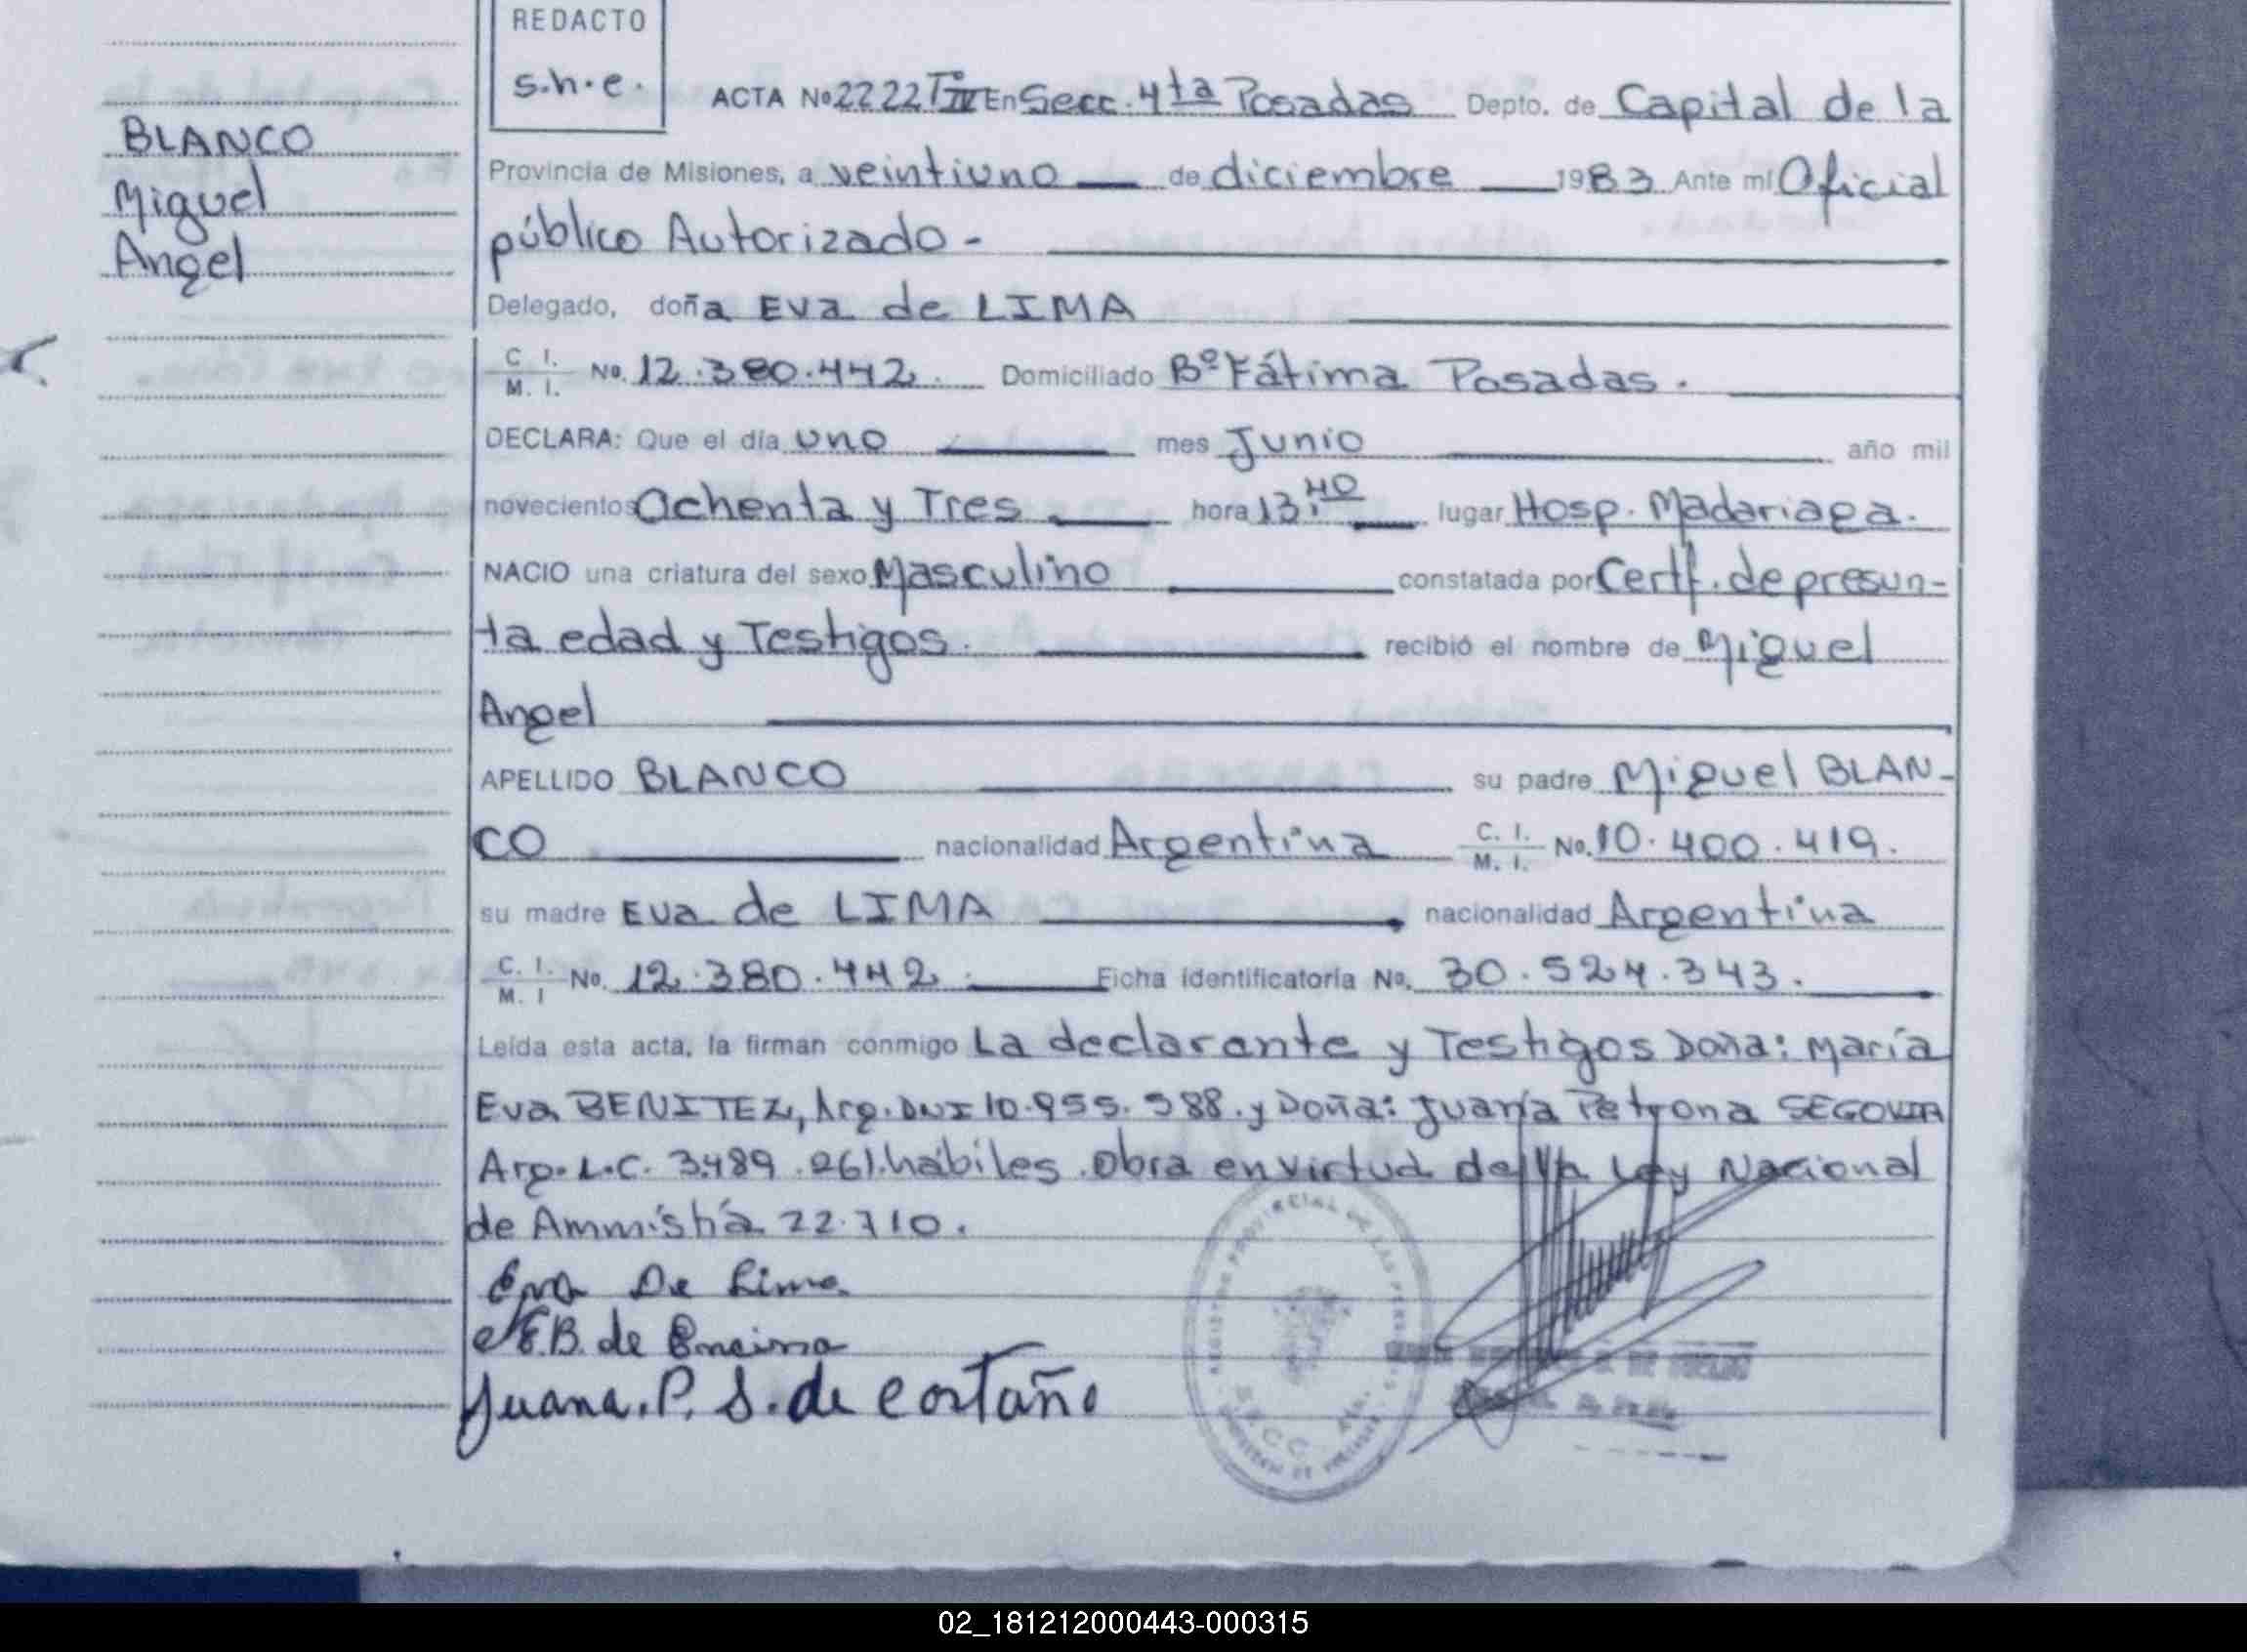 REDACTO
s.h.e.
ACTA No 2222 T°IV En Secc. 4ta Posadas Depto. de Capital de la
BLANCO
Miguel
Angel
Provincia de Misiones, a veintiuno de diciembre 1983 Ante mí Oficial
público Autorizado -
Delegado, doña Eva de LIMA
C. I. M. I. No. 12.380.442. Domiciliado Bº Fátima Posadas.
DECLARA: Que el día uno mes Junio año mil
novecientos Ochenta y Tres hora 13:40 lugar Hosp. Madariaga.
NACIO una criatura del sexo Masculino constatada por Certf. de presun-
ta edad y Testigos. recibió el nombre de Miguel
Angel
APELLIDO BLANCO su padre Miguel BLAN-
CO nacionalidad Argentina C. I. M. I. No. 10.400.419.
su madre Eva de LIMA nacionalidad Argentina
C. I. M. I No. 12.380.442. Ficha identificatoria No. 30.524.343.
Leída esta acta, la firman conmigo La declarante y Testigos Doña: María
Eva BENITEZ, Arg. DNI 10.955.588. y Doña: Juana Petrona SEGOVIA
Arg. L.C. 3.489.261. hábiles. Obra en virtud de la Ley Nacional
de Ammistía 22.710.
Eva De Lima
M.E.B. de Encina
Juana. P. S. de Costaño
REGISTRO PROVINCIAL DE LAS PERSONAS
SECC. 4ta.
02_181212000443-000315